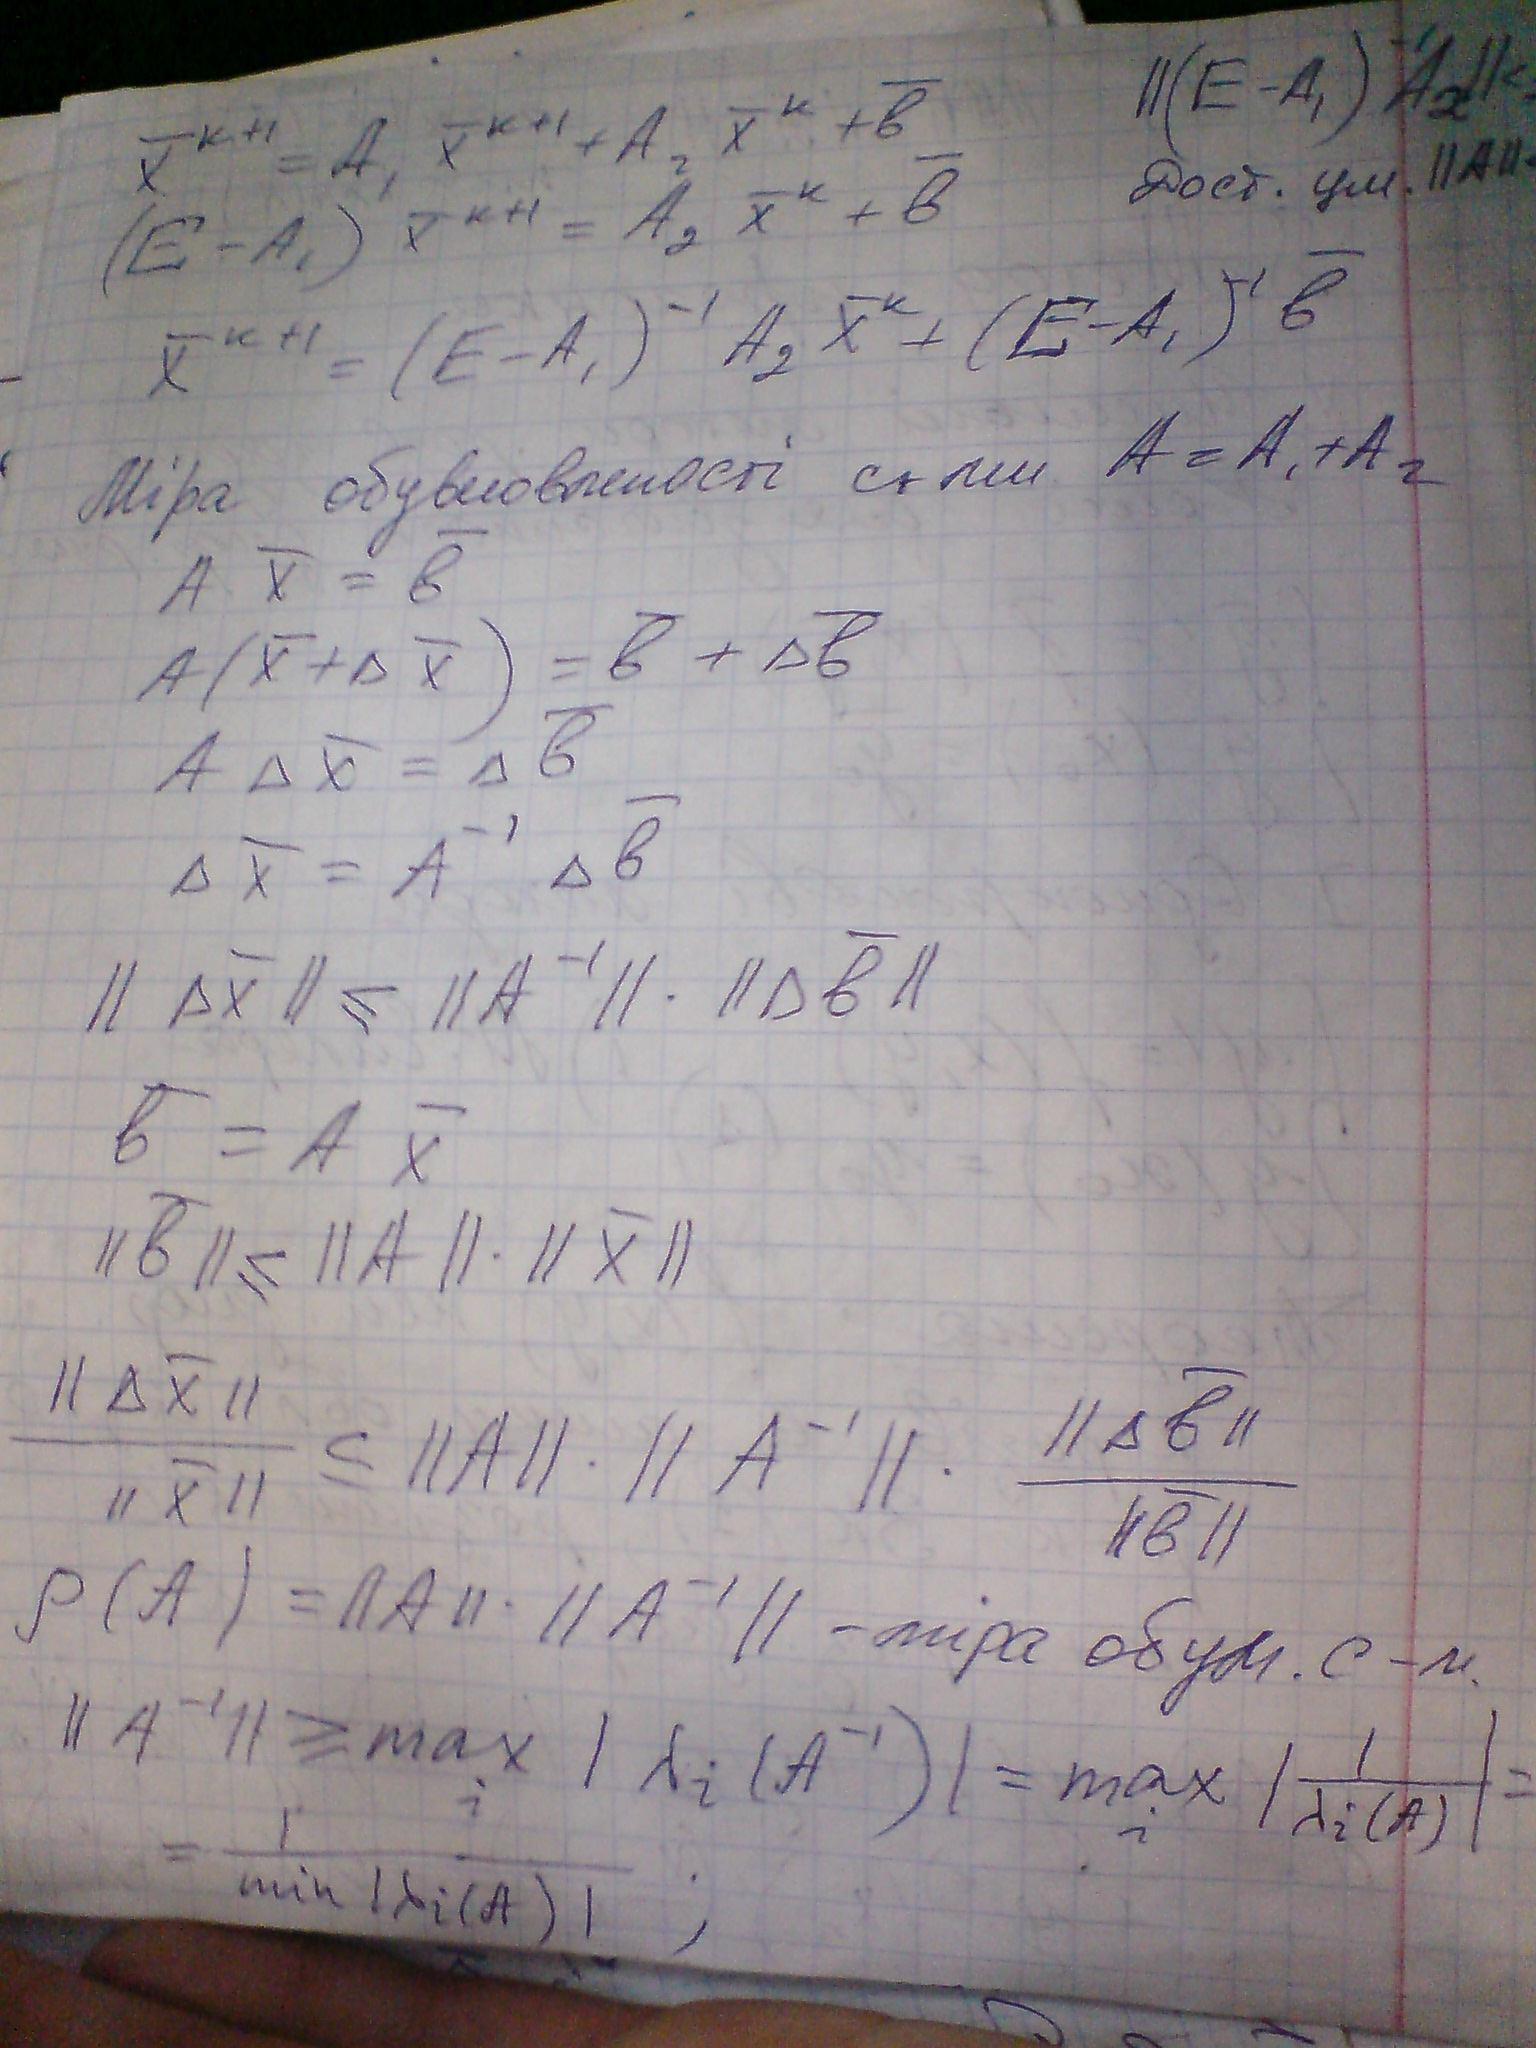 x̄ᵏ⁺¹ = A₁ x̄ᵏ⁺¹ + A₂ x̄ᵏ + b̄
‖(E - A₁)⁻¹ A₂‖<
(E - A₁) x̄ᵏ⁺¹ = A₂ x̄ᵏ + b̄
Дост. ум. ‖A‖<
x̄ᵏ⁺¹ = (E - A₁)⁻¹ A₂ x̄ᵏ + (E - A₁)⁻¹ b̄
Міра обумовленості A = A₁ + A₂
A x̄ = b̄
A(x̄ + Δ x̄) = b̄ + Δb̄
A Δ x̄ = Δ b̄
Δ x̄ = A⁻¹ Δ b̄
‖ Δx̄ ‖ ≤ ‖A⁻¹‖ · ‖Δb̄‖
b̄ = A x̄
‖b̄‖ ≤ ‖A‖ · ‖x̄‖
‖Δx̄‖ / ‖x̄‖ ≤ ‖A‖ · ‖A⁻¹‖ · ‖Δb̄‖ / ‖b̄‖
ρ(A) = ‖A‖ · ‖A⁻¹‖ - міра обум. с-м.
‖A⁻¹‖ ≥ max i |λᵢ(A⁻¹)| = max i |1 / λᵢ(A)| =
= 1 / min |λᵢ(A)| ;